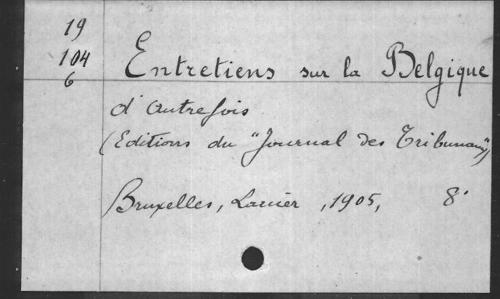 19
104
6
Entretiens sur la Belgique
d'autrefois
(Editions du "Journal des Tribunaux")
Bruxelles, Larcier, 1905, 8°